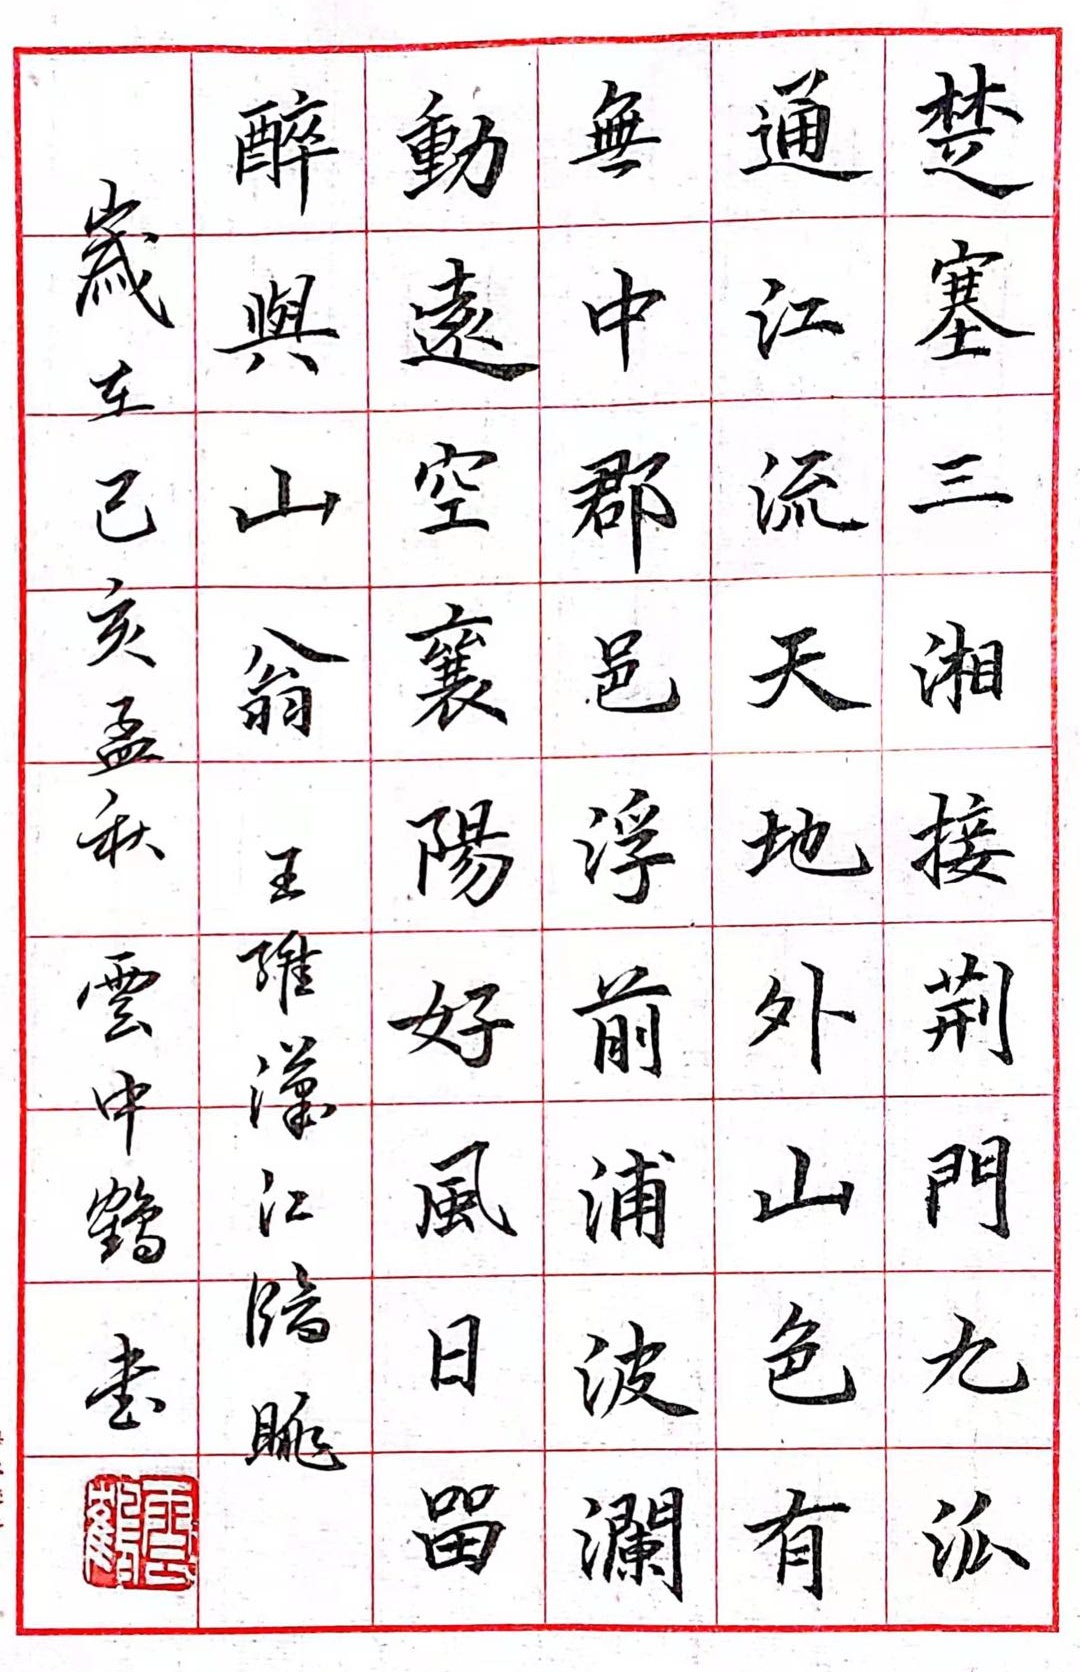 楚塞三湘接荆門九派
通江流天地外山色有
無中郡邑浮前浦波瀾
動遠空襄陽好風日畱
醉與山翁 王維漢江臨眺
歲在己亥孟秋 雲中鶴書